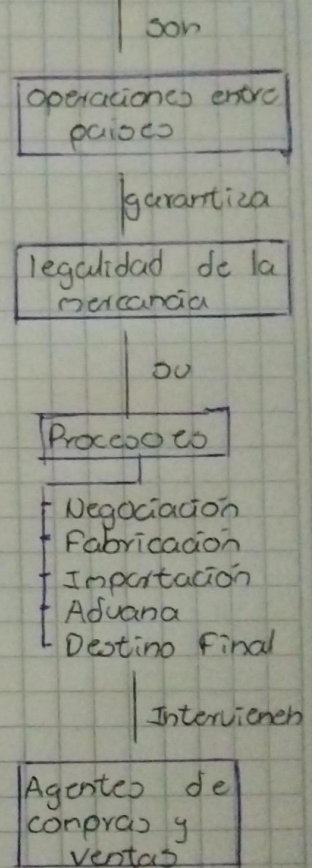 son
operaciones entre
paises
garantiza
legalidad de la
mercancia
su
Proceso es
Negociación
Fabricación
Importación
Aduana
Destino Final
Intervienen
Agentes de
compras y
ventas